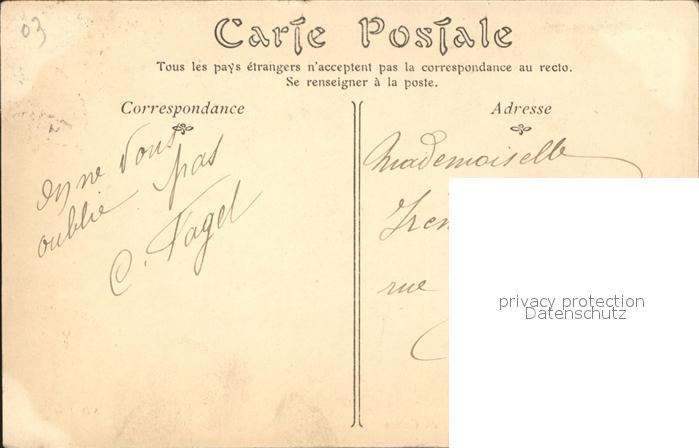 03
Carte Postale
Tous les pays étrangers n'acceptent pas la correspondance au recto.
Se renseigner à la poste.
Correspondance
on ne vous
oublie pas
C. Vagel
Adresse
Mademoiselle
rue
privacy protection
Datenschutz